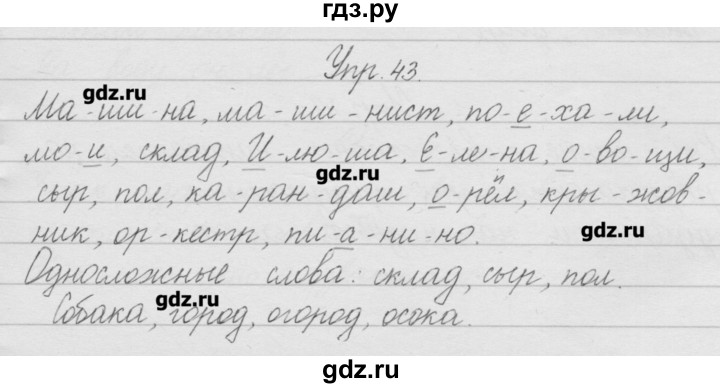 гдз.ру
Упр. 43.
gdz.ru
Ма-ши-на, ма-ши-нист, по-е-ха-ли,
мо-и, склад, И-лю-ша, Е-ле-на, о-во-щи,
gdz.ru
сыр, пол, ка-ран-даш, о-рёл, кры-жов-
gdz.ru
ник, ор-кестр, пи-а-ни-но.
Односложные слова: склад, сыр, пол.
gdz.ru
Собака, город, огород, осока.
gdz.ru